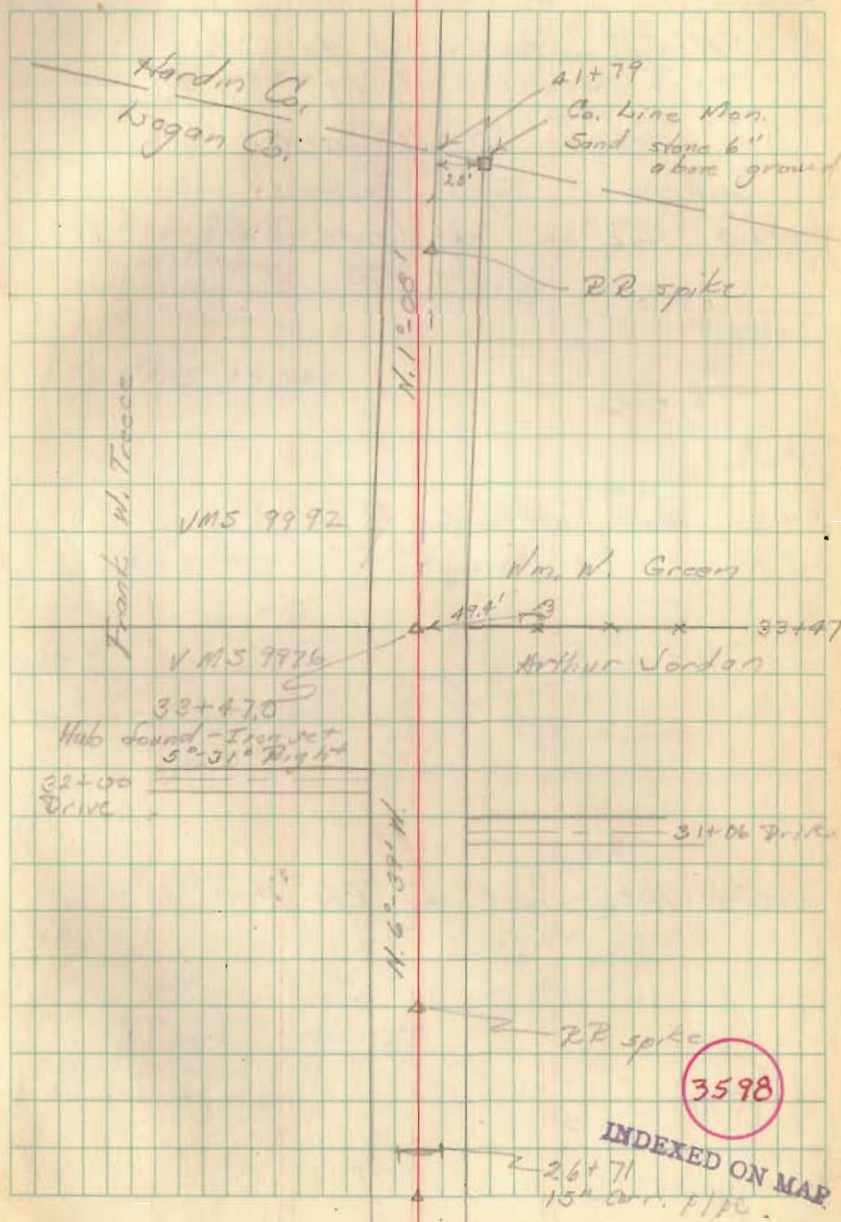 Hardin Co.
Logan Co.
41+79
Co. Line Mon.
Sand stone 6"
above ground
RR spike
N. 1°-08'
Frank W. Treece
VMS 9992
Wm. W. Green
49.4'
33+47
VMS 9976
Arthur Jordan
33+47.0
Hub found - Iron set
5°-31' Right
32+00
Drive
31+06 Drive
N. 6°-39' W.
RR spike
3598
INDEXED ON MAP
26+71
15" Corr. pipe